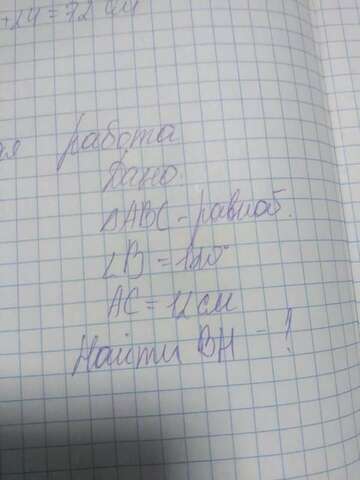 +24 = 72 см
ая работа
Дано.
△ABC - равноб.
∠B = 120°
AC = 12 см
Найти BH - ?